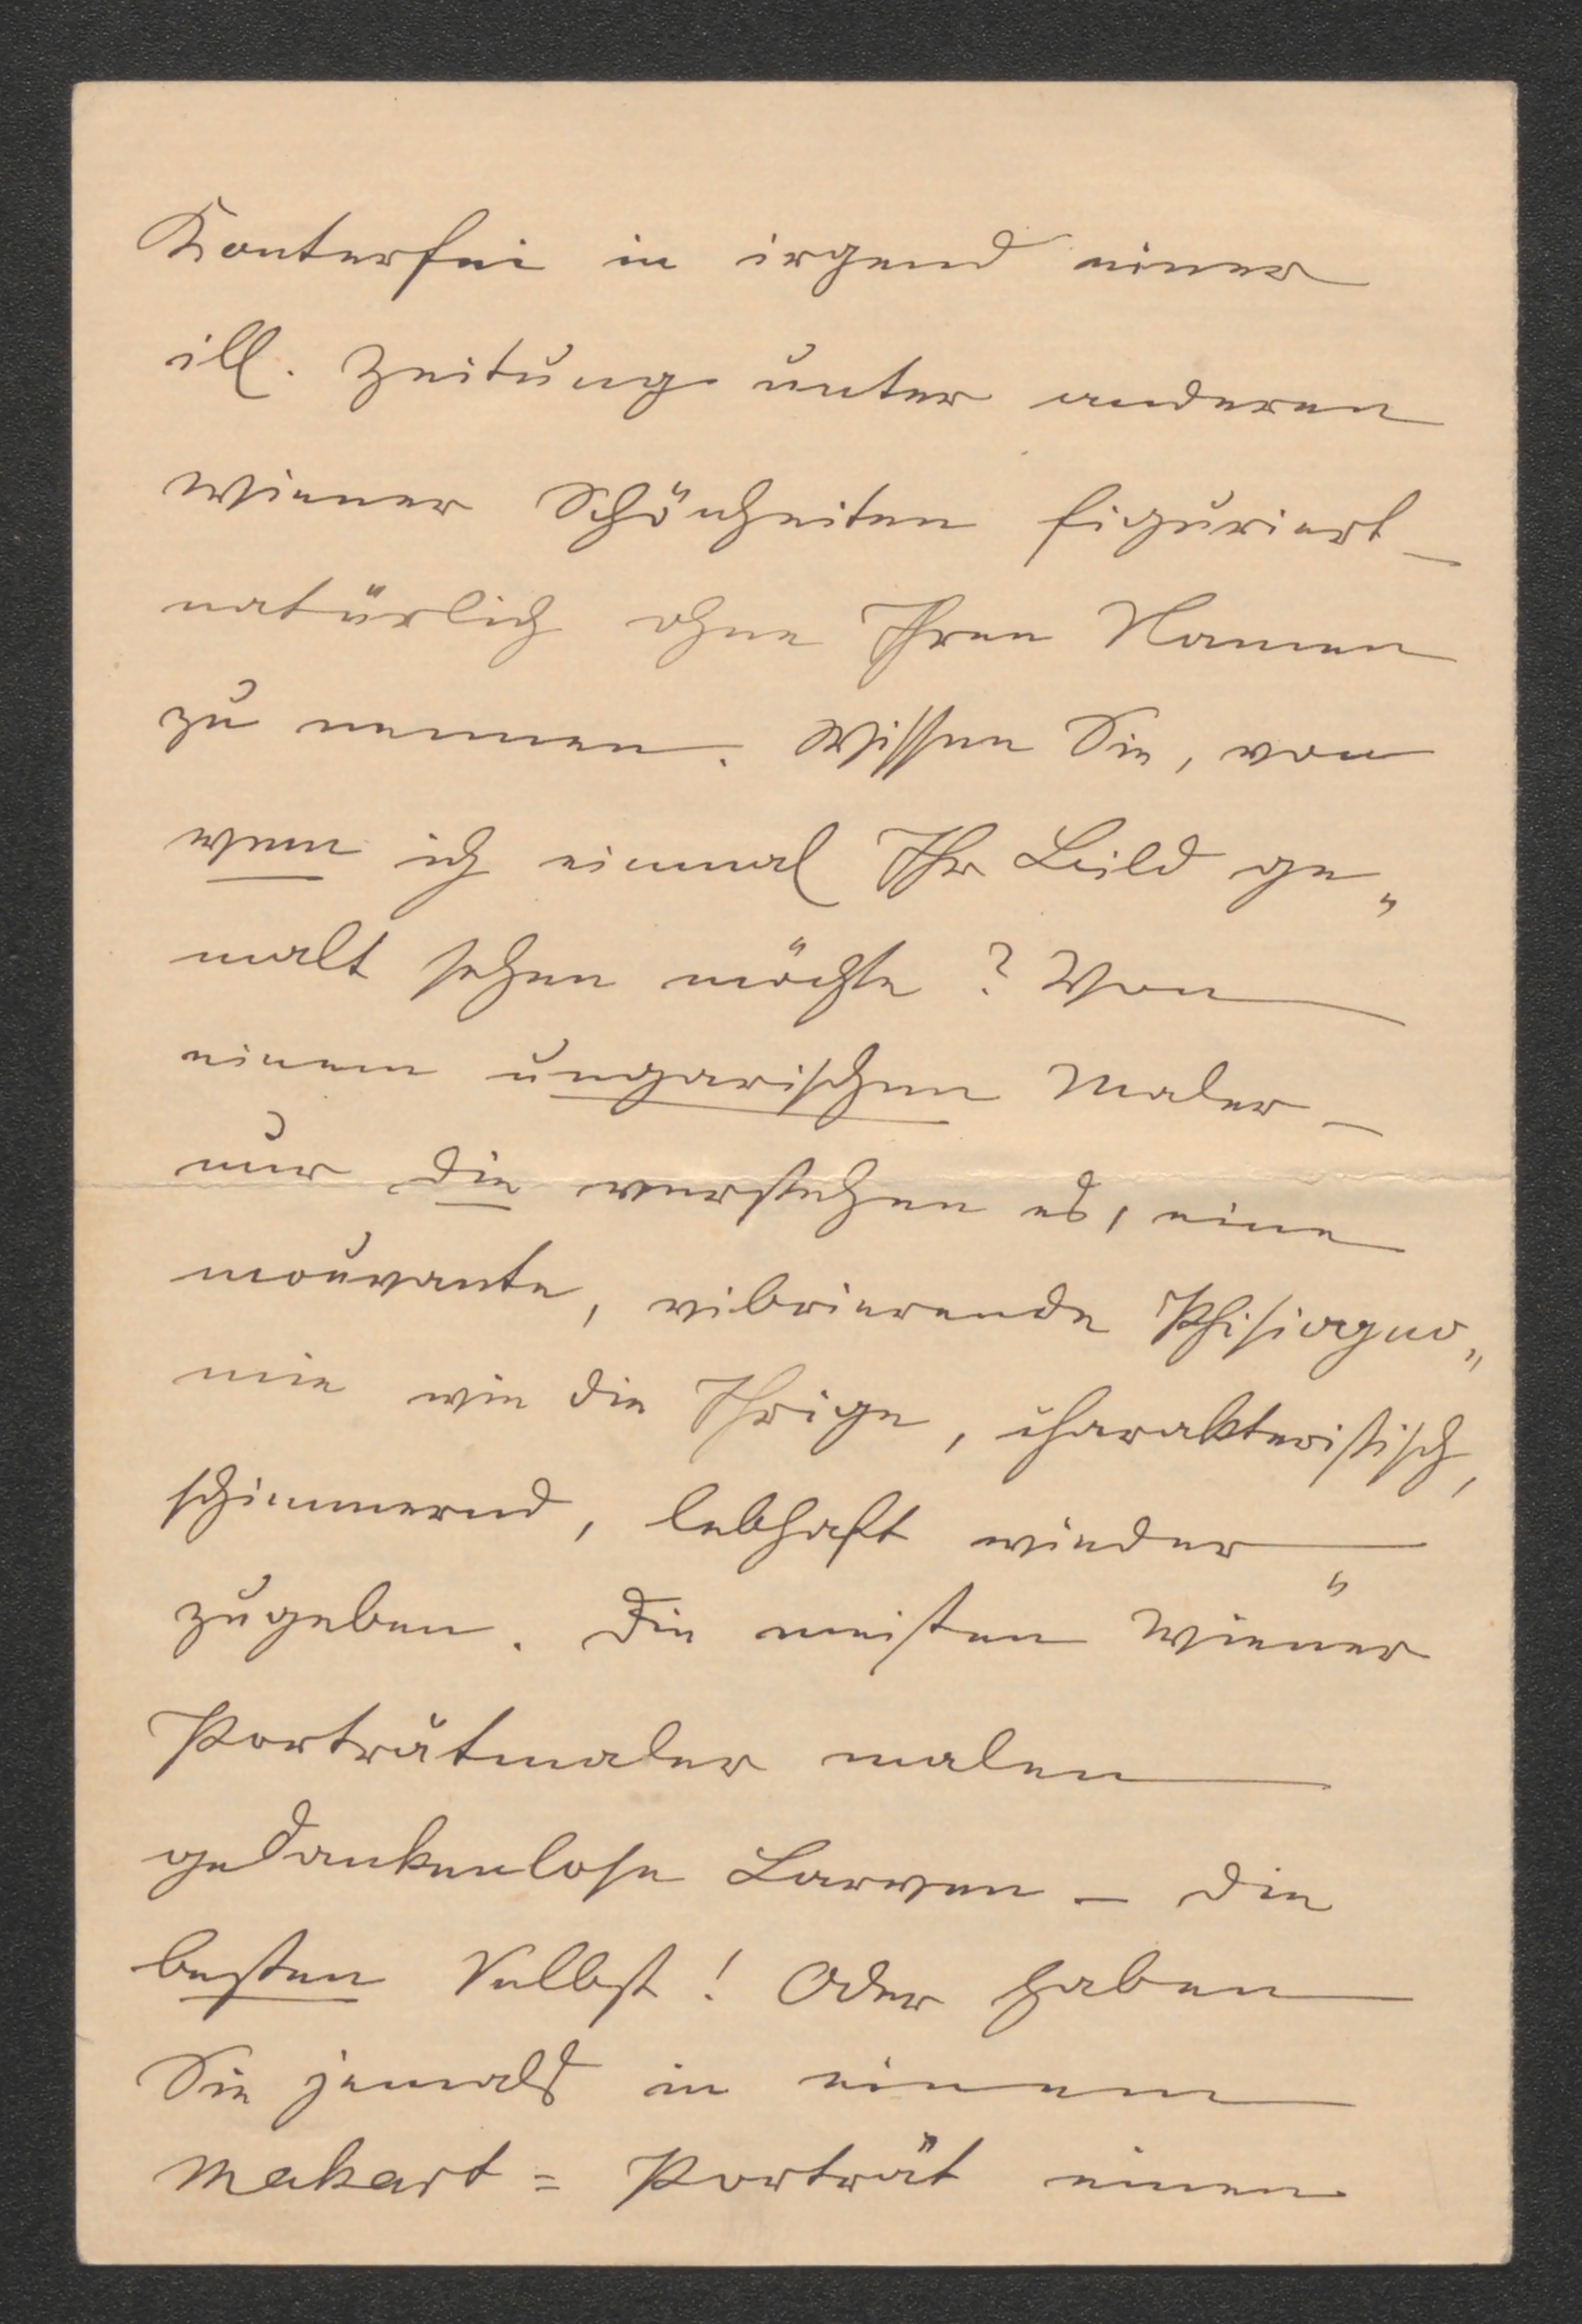 Konterfei in irgend einer
ill. Zeitung unter anderen
Wiener Schönheiten figuriert –
natürlich ohne Ihren Namen
zu nennen. Wissen Sie, von
wem ich einmal Ihr Bild ge„
malt sehen möchte? Von
einem ungarischen Maler –
nur die verstehen es, eine
mouvante, vibrierende Phisiogno„
mie wie die Ihrige, charakteristisch,
schimmernd, lebhaft wieder„
zugeben. Die meisten Wiener
Porträtmaler malen
gedankenlose Larven – die
besten Selbst! Oder haben
Sie jemals in einem
Makart = Porträt einen